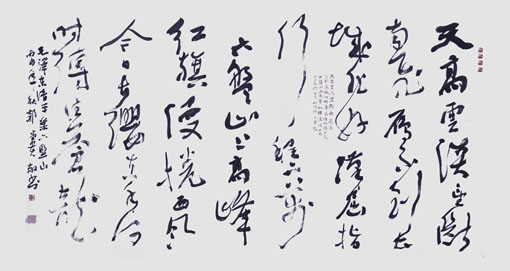 天高雲淡望斷
南飞雁不到长
城非好漢屈指
行程二万
六盤山上高峰
红旗漫捲西风
今日长缨在手何
时縛住蒼龙
毛澤东清平樂六盤山